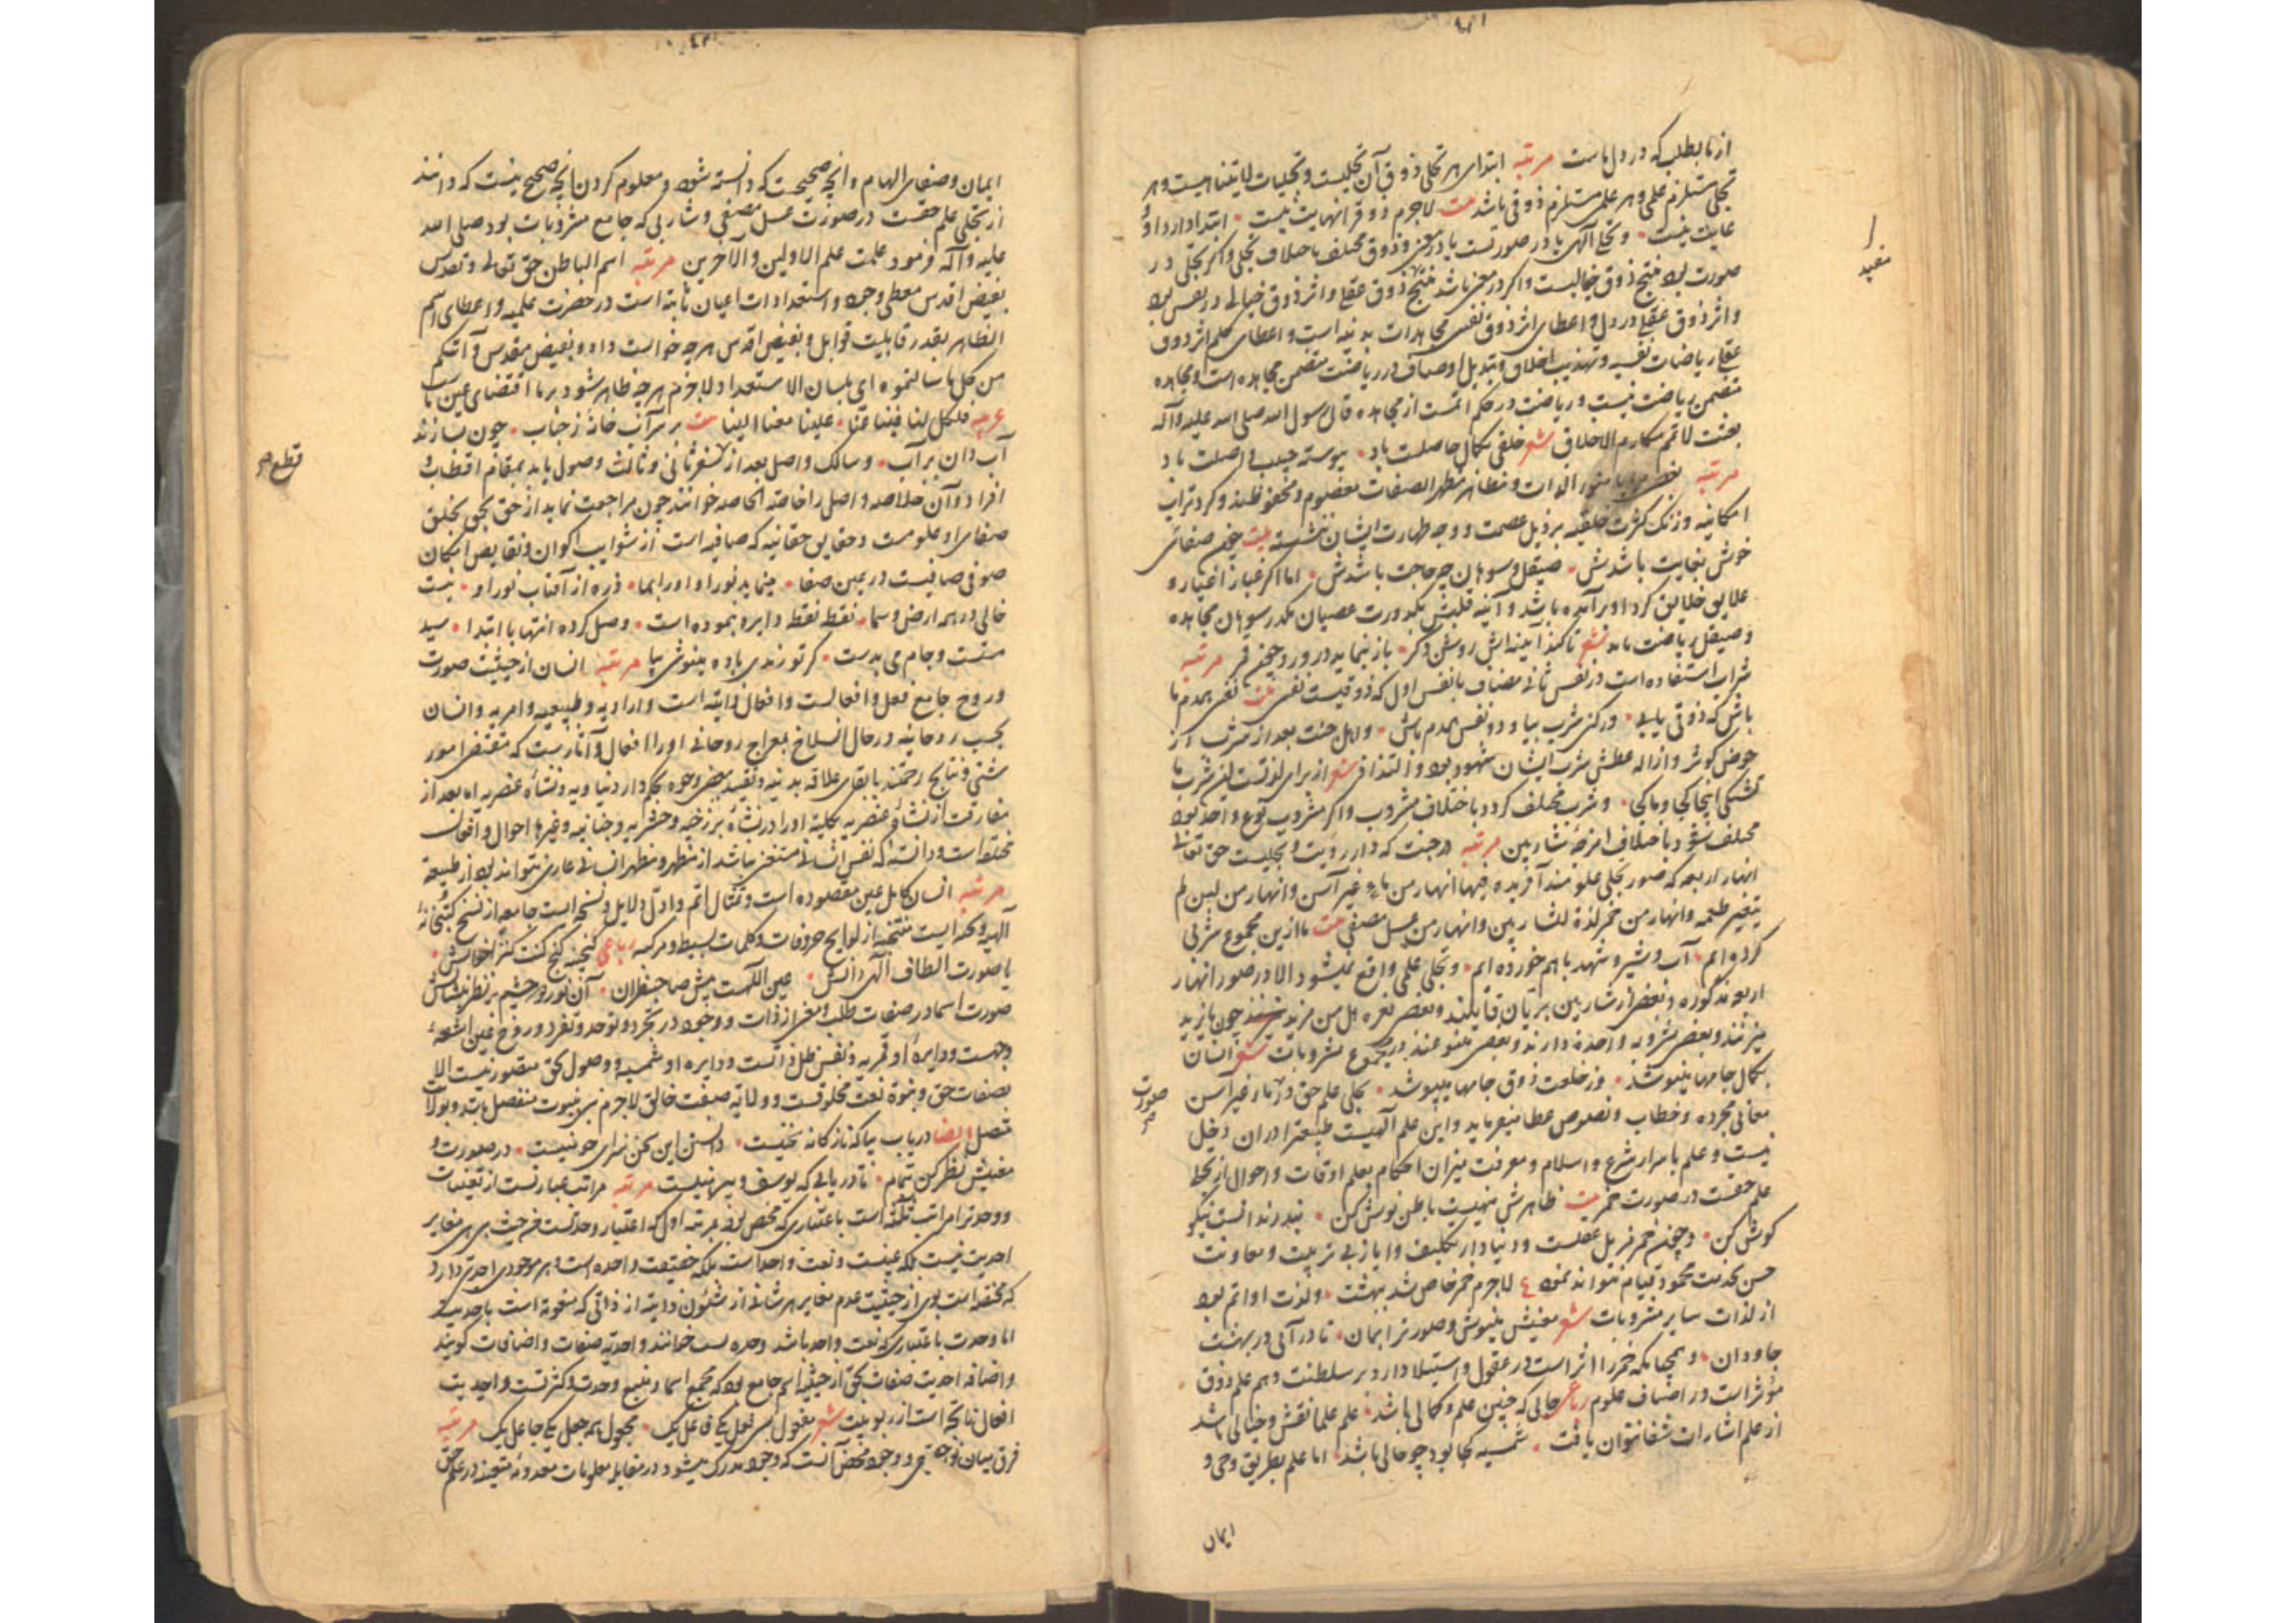 از ما بطلب که در دل ماست مرتبه ابتدای هر تجلی ذوق آن تجلیست و تجلیات لایتناهیست و هر
تجلی مستلزم علمی و هر علمی مستلزم ذوقی باشد بیت لاجرم ذوق را نهایت نیست ابتدا دارد او
غایت نیست و تجلی الهی یا در صورتست یا در معنی و ذوق مختلف باختلاف تجلی و اگر تجلی در
صورت بود منتج ذوق خیالیست و اگر در معنی باشد منتج ذوق عقلی و اثر ذوق خیالی در نفس بود
و اثر ذوق عقلی در دل و اعطای اثر ذوق نفسی مجاهدات بدنیه است و اعطای حکم اثر ذوق
عقلی ریاضات نفسیه و تهذیب اخلاق و تبدیل اوصاف و در ریاضت متضمن مجاهده است و مجاهده
متضمن ریاضت نیست و ریاضت در حکم اتمست از مجاهده قال رسول الله صلی الله علیه و آله
بعثت لاتمم مکارم الاخلاق شعر خلقی بکمال حاصلت باد پیوسته حبیب واصلت باد
مرتبه بعضی مرایا منور الذات و مظاهر مطهر الصفات معصوم و محفوظند و گرد تراب
امکانیه و زنگ کثرت خلقیه بر ذیل عصمت و وجه طهارت ایشان ننشسته بیت
خوش بغایت باشدش صیقل و سوهان چه حاجت باشدش اما اگر غبار اغیار و
علایق خلایق گرد او برآمده باشد و آینه قلبش بکدورت عصیان مکدر سوهان مجاهده
و صیقل ریاضت باید شعر تا کند آیینه‌اش روشن دگر باز نماید درو روچون قمر مرتبه
شراب استفاده است در نفس ثانی مضاف با نفس اول که ذوقیست نفسی بیت نفسی همدم ما
باش که ذوقی یابی ور کنی شرب بیا و دو نفس همدم باش و اهل جنت بعد از شرب از
حوض کوثر و ازاله عطش شرب ایشان شهود بود و التذاذ شعر از برای لذتست این شرب ما
تشنگی اینجا کجا و ما کجا و شرب مختلف گردد باختلاف مشروب و اگر مشروب نوع واحد بود
مختلف شود باختلاف امزجه شاربین مرتبه در جنت که دار رؤیت و تجلیست حق تعالی
انهار اربعه که صور تجلی علومند آفریده فیها انهار من ماء غیر آسن و انهار من لبن لم
یتغیر طعمه و انهار من خمر لذة للشاربین و انهار من عسل مصفی بیت ما ازین مجموع شربی
کرده‌ایم آب و شیر و شهد با هم خورده‌ایم و تجلی علمی واقع نمیشود الا در صور انهار
اربعه مذکوره و بعضی از شاربین بر یان قایلند و بعضی نعره هل من مزید چون بایزید
میزنند و بعضی مشروبه واحده دارند و بعضی متنوعند در مجموع مشروبات شعر انسان
بکمال جامها مینوشد وز خلعت ذوق جامها میپوشد تجلی علم حق در انهار غیر آسن
معانی مجرده و خطاب و نصوص عطا میفرماید و این علم الهیست طبیعت را در آن دخل
نیست و علم باسرار شرع و اسلام و معرفت میزان احکام بعلم اوقات و احوال از تجلی
علم حقست در صورت خمر بیت ظاهرش نهیست باطن نوش کن پند رندانست نیکو
گوش کن و چون خمر مزیل عقلست و دنیا دار تکلیف و ایاز بی تربیت و معاونت
حسن بخدمت محمود قیام نتواند نمود لاجرم خمر خاص شد ببهشت و لذت او اتم بود
از لذات سایر مشروبات شعر معنیش مینوش و صورت را بمان تا در آیی در بهشت
جاودان و همچنانکه خمر را اثر است در عقول و استیلا دارد بر سلطنت وهم علم ذوق
مؤثر است در اصناف علوم رباعی حالی که چنین علم و کمالی باشد علم علما نقش و خیالی باشد
از علم اشارات شفا نتوان یافت شمسیه کجا بود چو حالی باشد اما علم بطریق وحی و
ایمان
مفید
صورت
ایمان و صفای الهام و آنچه صحیحست که دانسته شود و معلوم کردن آنچه صحیح نیست که دانند
از تجلی علم حقست در صورت عسل مصفی و شاربی که جامع مشروبات بود صلی الله
علیه و آله فرمود علمت علم الاولین و الآخرین مرتبه اسم الباطن حق تعالی و تقدس
بفیض اقدس معطی وجود و استعدادات اعیان ثابته است در حضرت علمیه و اعطای اسم
الظاهر بقدر قابلیت قوابل و بفیض اقدس هرچه خواست داد و بفیض مقدس و آتیکم
من کل ما سالتموه ای بلسان الاستعداد لاجرم هرچه ظاهر شود بر ما اقتضای عین ماست
عربیه فلکل لنا فینا عنا علینا معنا الینا بیت بر سر آب خانه ز حباب چون بسازند
آب دان بر آب و سالک واصل بعد از سفر ثانی و ثالث وصول یابد بمقام اقطاب و
افراد و آن خلاصه و اصل را خاصة الخاصه خوانند چون مراجعت نماید از حق بحق بخلق
صفای او علومست و حقایق حقانیه که صافیه است از شوایب اکوان و نقایص امکان
صوفی صافیست در عین صفا مینماید نور او او را بما ذره از آفتاب نور او نیست
خالی در همه ارض و سما نقطه نقطه دایره بنموده است وصل کرده انتها با ابتدا سید
مستست و جام می بدست گر تو رندی باده مینوشی بیا مرتبه انسان از حیثیت صورت
و روح جامع فعل و افعالست و افعال ذاتیه است و ارادیه و طبیعیه و امریه و انسان
بحسب روحانیه در حال انسلاخ بمعراج روحانی او را افعال و آثارست که مقتضی امور
شتی و نتایج رحمتند با بقای علاقه بدنیه و تقید ببعضی وجوه بحکم دار دنیاویه و نشأه عنصریه اما بعد از
مفارقت از نشأه عنصریه بکلیة او را در نشأه برزخیه و حشریه و جنانیه و غیرها احوال و افعال
مختلفه است و دانسته که نفس انسانی مستغنی نباشد از مظهر و مظهر انسانی عاری نتواند بود از طبیعة
مرتبه انسان کامل عین مقصوده است و تمثال اتم و ادل دلایل و نسخه‌ایست جامعه از نسخ کتبخانه
الهیه و مجله‌ایست منتخبه از لوایح حروفات و کلمات بسیط و مرکبه رباعی گنجینه گنج کنت کنزا خوانش
یا صورت الطاف الهی دانش عین اللهست پیش صاحبنظران آن نور دو چشم بر نظر بنشانش
صورت اسما در صفات طلب و معنی از ذات و وجود در تجرد و توحد و تفرد و روح عین اشعه
وجهست و دایره او قمریه و نفس ظل ذاتست و دایره او شمسیه و وصول بحق متصور نیست الا
بصفات حق و نبوة نعت مخلوقست و ولایة صفت خالق لاجرم نبی بنبوت منفصل باشد و بولایت
متصل ایضا دریاب بیا که نازکانه سخنیست دانستن این سخن نه برای چو منیست در صورت و
معنیش نظر کن بتمام تا دریابی که یوسف و پیرهنیست مرتبه مراتب عبارتست از تعینات
و وحدت را مراتب ثلثه است باعتباری که محض بود مرتبه اول که اعتبار وحدتست من حیث هی هی مغایر
احدیت نیست بلکه عینست و نعت واحد است بلکه حقیقت واحده است و هر موجودی احدیتی دارد
که مختصه است بوی از حیثیت عدم مغایر هر شانی از شئون ذاتیه از ذاتی که منعوته است باحدیت
اما وحدت باعتباری که نعت واحد باشد وحدت نسب خوانند و احدیة صفات و اضافات گویند
و اضافه احدیت صفات بحق از حیثیة اسم جامع بود که مجمع اسما و منبع وحدت و کثرتست و احدیت
افعال ناتجه است از ربوبیت شعر مفعول بسی فعل یکی فاعل یک مجعول همه جعل یکی جاعل یک مرتبه
فرق میان وجود حقی و وجود محض آنست که وجود مدرک میشود در مقابله معلومات معدومه متعینه در علم حق